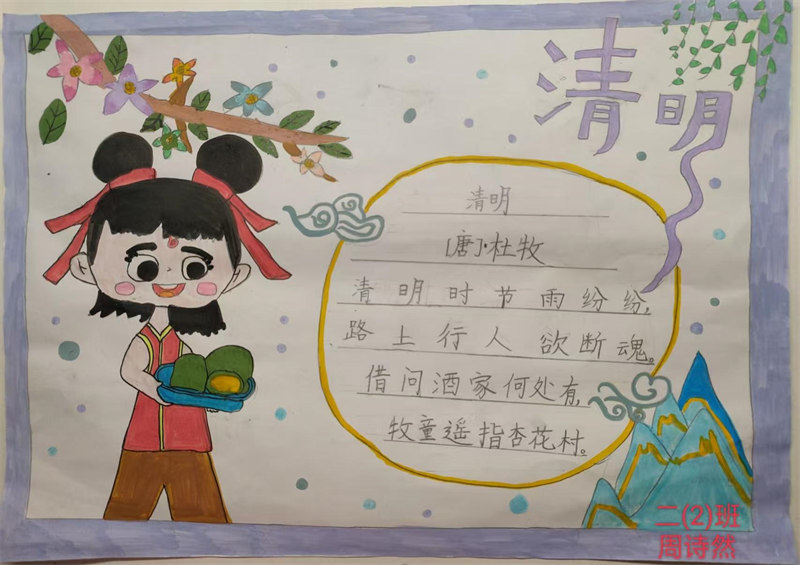 清明
清明
[唐]·杜牧
清明时节雨纷纷，
路上行人欲断魂。
借问酒家何处有，
牧童遥指杏花村。
二(2)班
周诗然